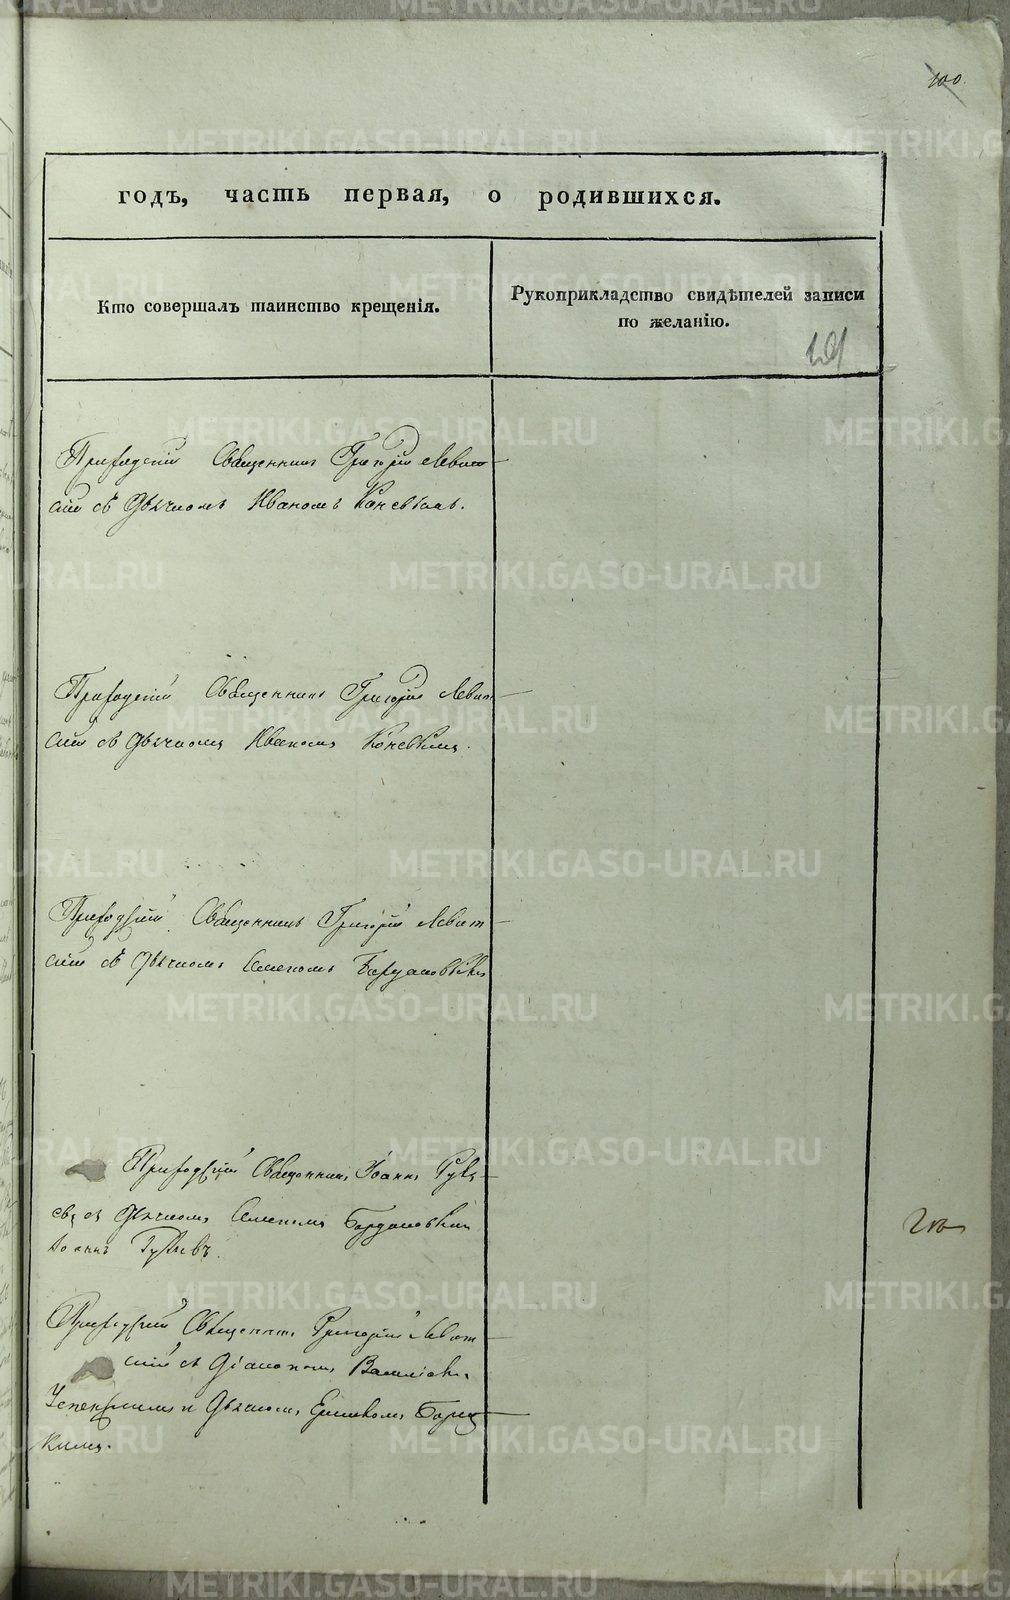 100.
годъ, часть первая, о родившихся.
Кто совершалъ таинство крещенія.
Рукоприкладство свидѣтелей записи
по желанію.
Приходскій Священникъ Григорій Левит-
скій съ Дьячкомъ Иваномъ Коневымъ.
Приходскій Священникъ Григорій Левит-
скій съ Дьячкомъ Иваномъ Коневымъ.
Приходскій Священникъ Григорій Левит-
скій съ Дьячкомъ Семеномъ
Приходскій Священникъ Іоаннъ
съ Дьячкомъ Семеномъ
Іоаннъ
Приходскій Священникъ Григорій Левит-
скій съ Діакономъ
Успенскимъ и Дьячкомъ
METRIKI.GASO-URAL.RU